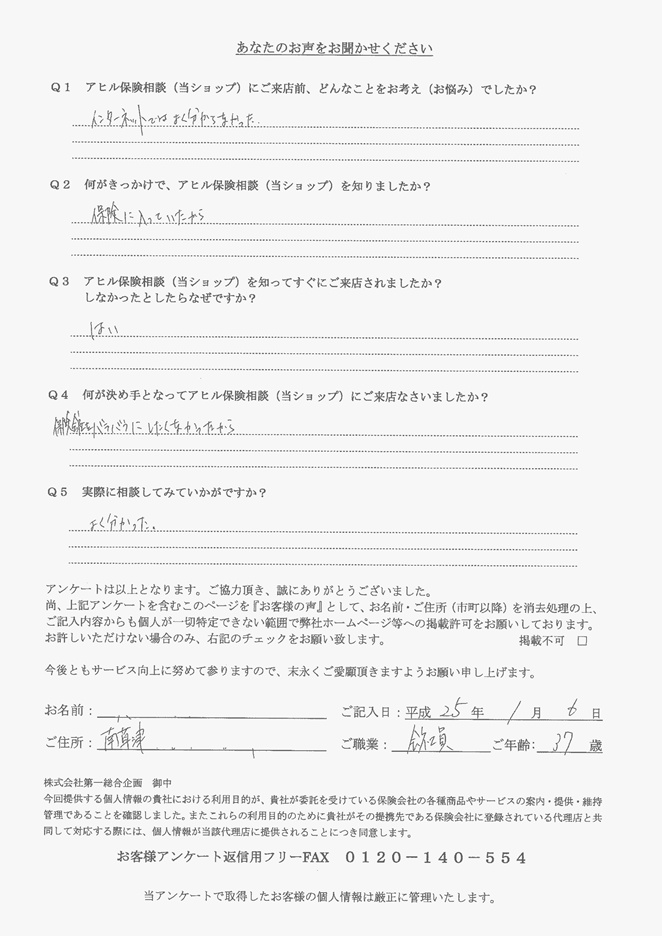 あなたのお声をお聞かせください
Q1 アヒル保険相談（当ショップ）にご来店前、どんなことをお考え（お悩み）でしたか？
インターネットではよく分からなかった。
Q2 何がきっかけで、アヒル保険相談（当ショップ）を知りましたか？
保険に入っていたから
Q3 アヒル保険相談（当ショップ）を知ってすぐにご来店されましたか？
しなかったとしたらなぜですか？
はい
Q4 何が決め手となってアヒル保険相談（当ショップ）にご来店なさいましたか？
バラバラにしたくなかったから
Q5 実際に相談してみていかがですか？
よく分かった。
アンケートは以上となります。ご協力頂き、誠にありがとうございました。
尚、上記アンケートを含むこのページを『お客様の声』として、お名前・ご住所（市町以降）を消去処理の上、
ご記入内容からも個人が一切特定できない範囲で弊社ホームページ等への掲載許可をお願いしております。
お許しいただけない場合のみ、右記のチェックをお願い致します。 掲載不可 □
今後ともサービス向上に努めて参りますので、末永くご愛願頂きますようお願い申し上げます。
お名前： ご記入日：平成 25 年 1 月 6 日
ご住所： 南草津 ご職業： ご年齢： 37 歳
株式会社第一総合企画 御中
今回提供する個人情報の貴社における利用目的が、貴社が委託を受けている保険会社の各種商品やサービスの案内・提供・維持
管理であることを確認しました。またこれらの利用目的のために貴社がその提携先である保険会社に登録されている代理店と共
同して対応する際には、個人情報が当該代理店に提供されることにつき同意します。
お客様アンケート返信用フリーFAX 0120－140－554
当アンケートで取得したお客様の個人情報は厳正に管理いたします。